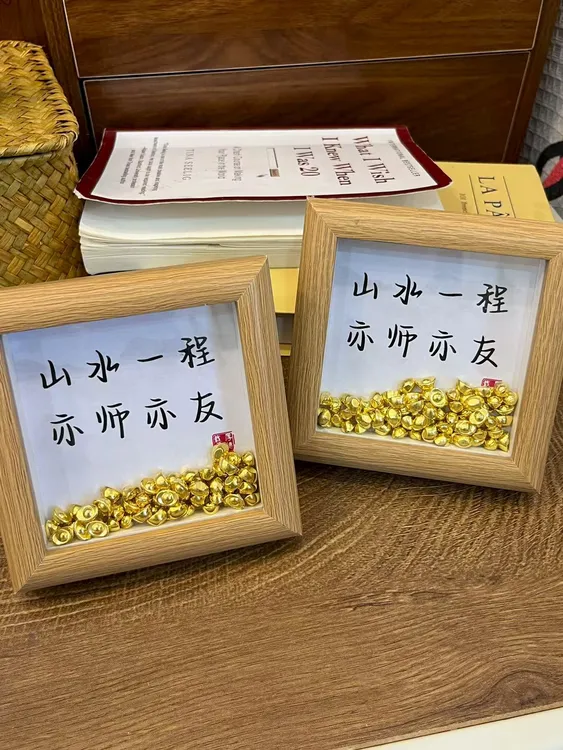 What I Wish
I Knew When
I Was 20
TINA SEELIG
LA PA
山水一程
亦师亦友
山水一程
亦师亦友